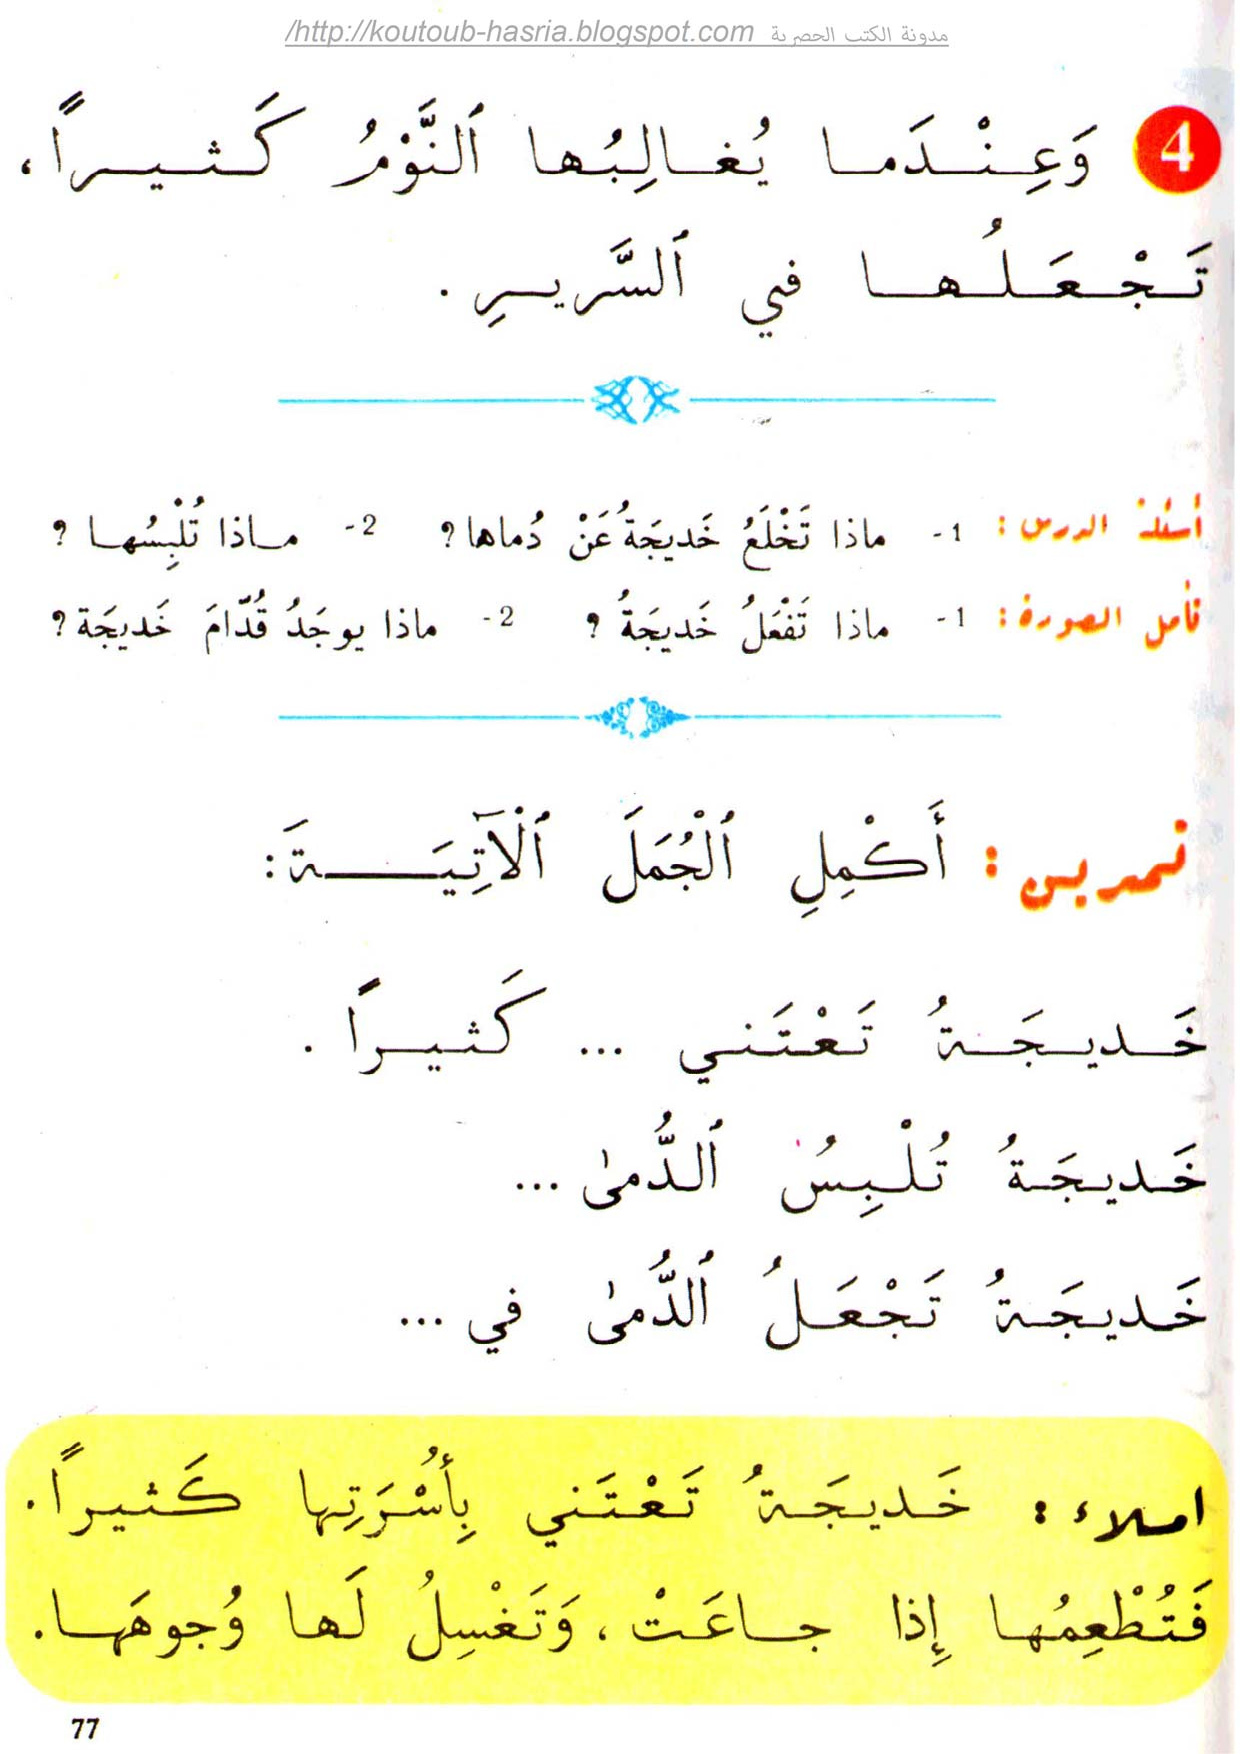 http://koutoub-hasria.blogspot.com/ مدونة الكتب الحصرية
4 وَعِنْدَما يُغالِبُها ٱلنَّوْمُ كَثيراً،
تَجْعَلُها في ٱلسَّريرِ.
أسئلة الدرس: 1- ماذا تَخْلَعُ خَديجَةُ عَنْ دُماها؟ 2- ماذا تُلْبِسُها؟
تأمل الصورة: 1- ماذا تَفْعَلُ خَديجَةُ؟ 2- ماذا يوجَدُ قُدّامَ خَديجَة؟
تمرين: أَكْمِلِ ٱلْجُمَلَ ٱلْآتِيَةَ:
خَديجَةُ تَعْتَني ... كَثيراً.
خَديجَةُ تُلْبِسُ ٱلدُّمىٰ ...
خَديجَةُ تَجْعَلُ ٱلدُّمىٰ في ...
املاء: خَديجَةُ تَعْتَني بِأُسْرَتِها كَثيراً.
فَتُطْعِمُها إِذا جاعَتْ، وَتَغْسِلُ لَها وُجوهَها.
77